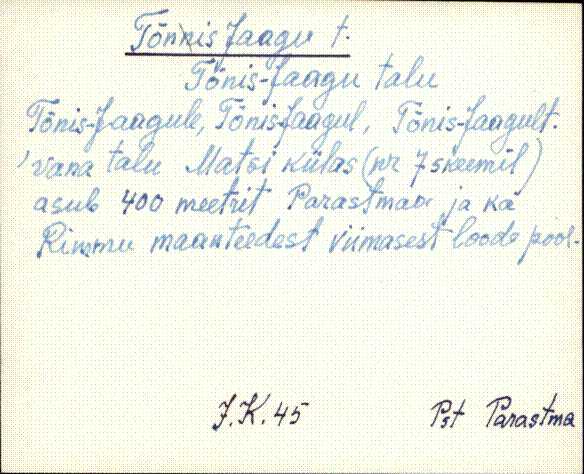 Tõnnis Jaagu t.
Tõnis-Jaagu talu
Tõnis-Jaagule, Tõnis-Jaagul, Tõnis-Jaagult.
vana talu Matsi külas (nr 7 skeemil)
asub 400 meetrit Parastmaa ja ka
Rimmu maanteedest viimasest loode pool.
J.K. 45
Pst Parastma